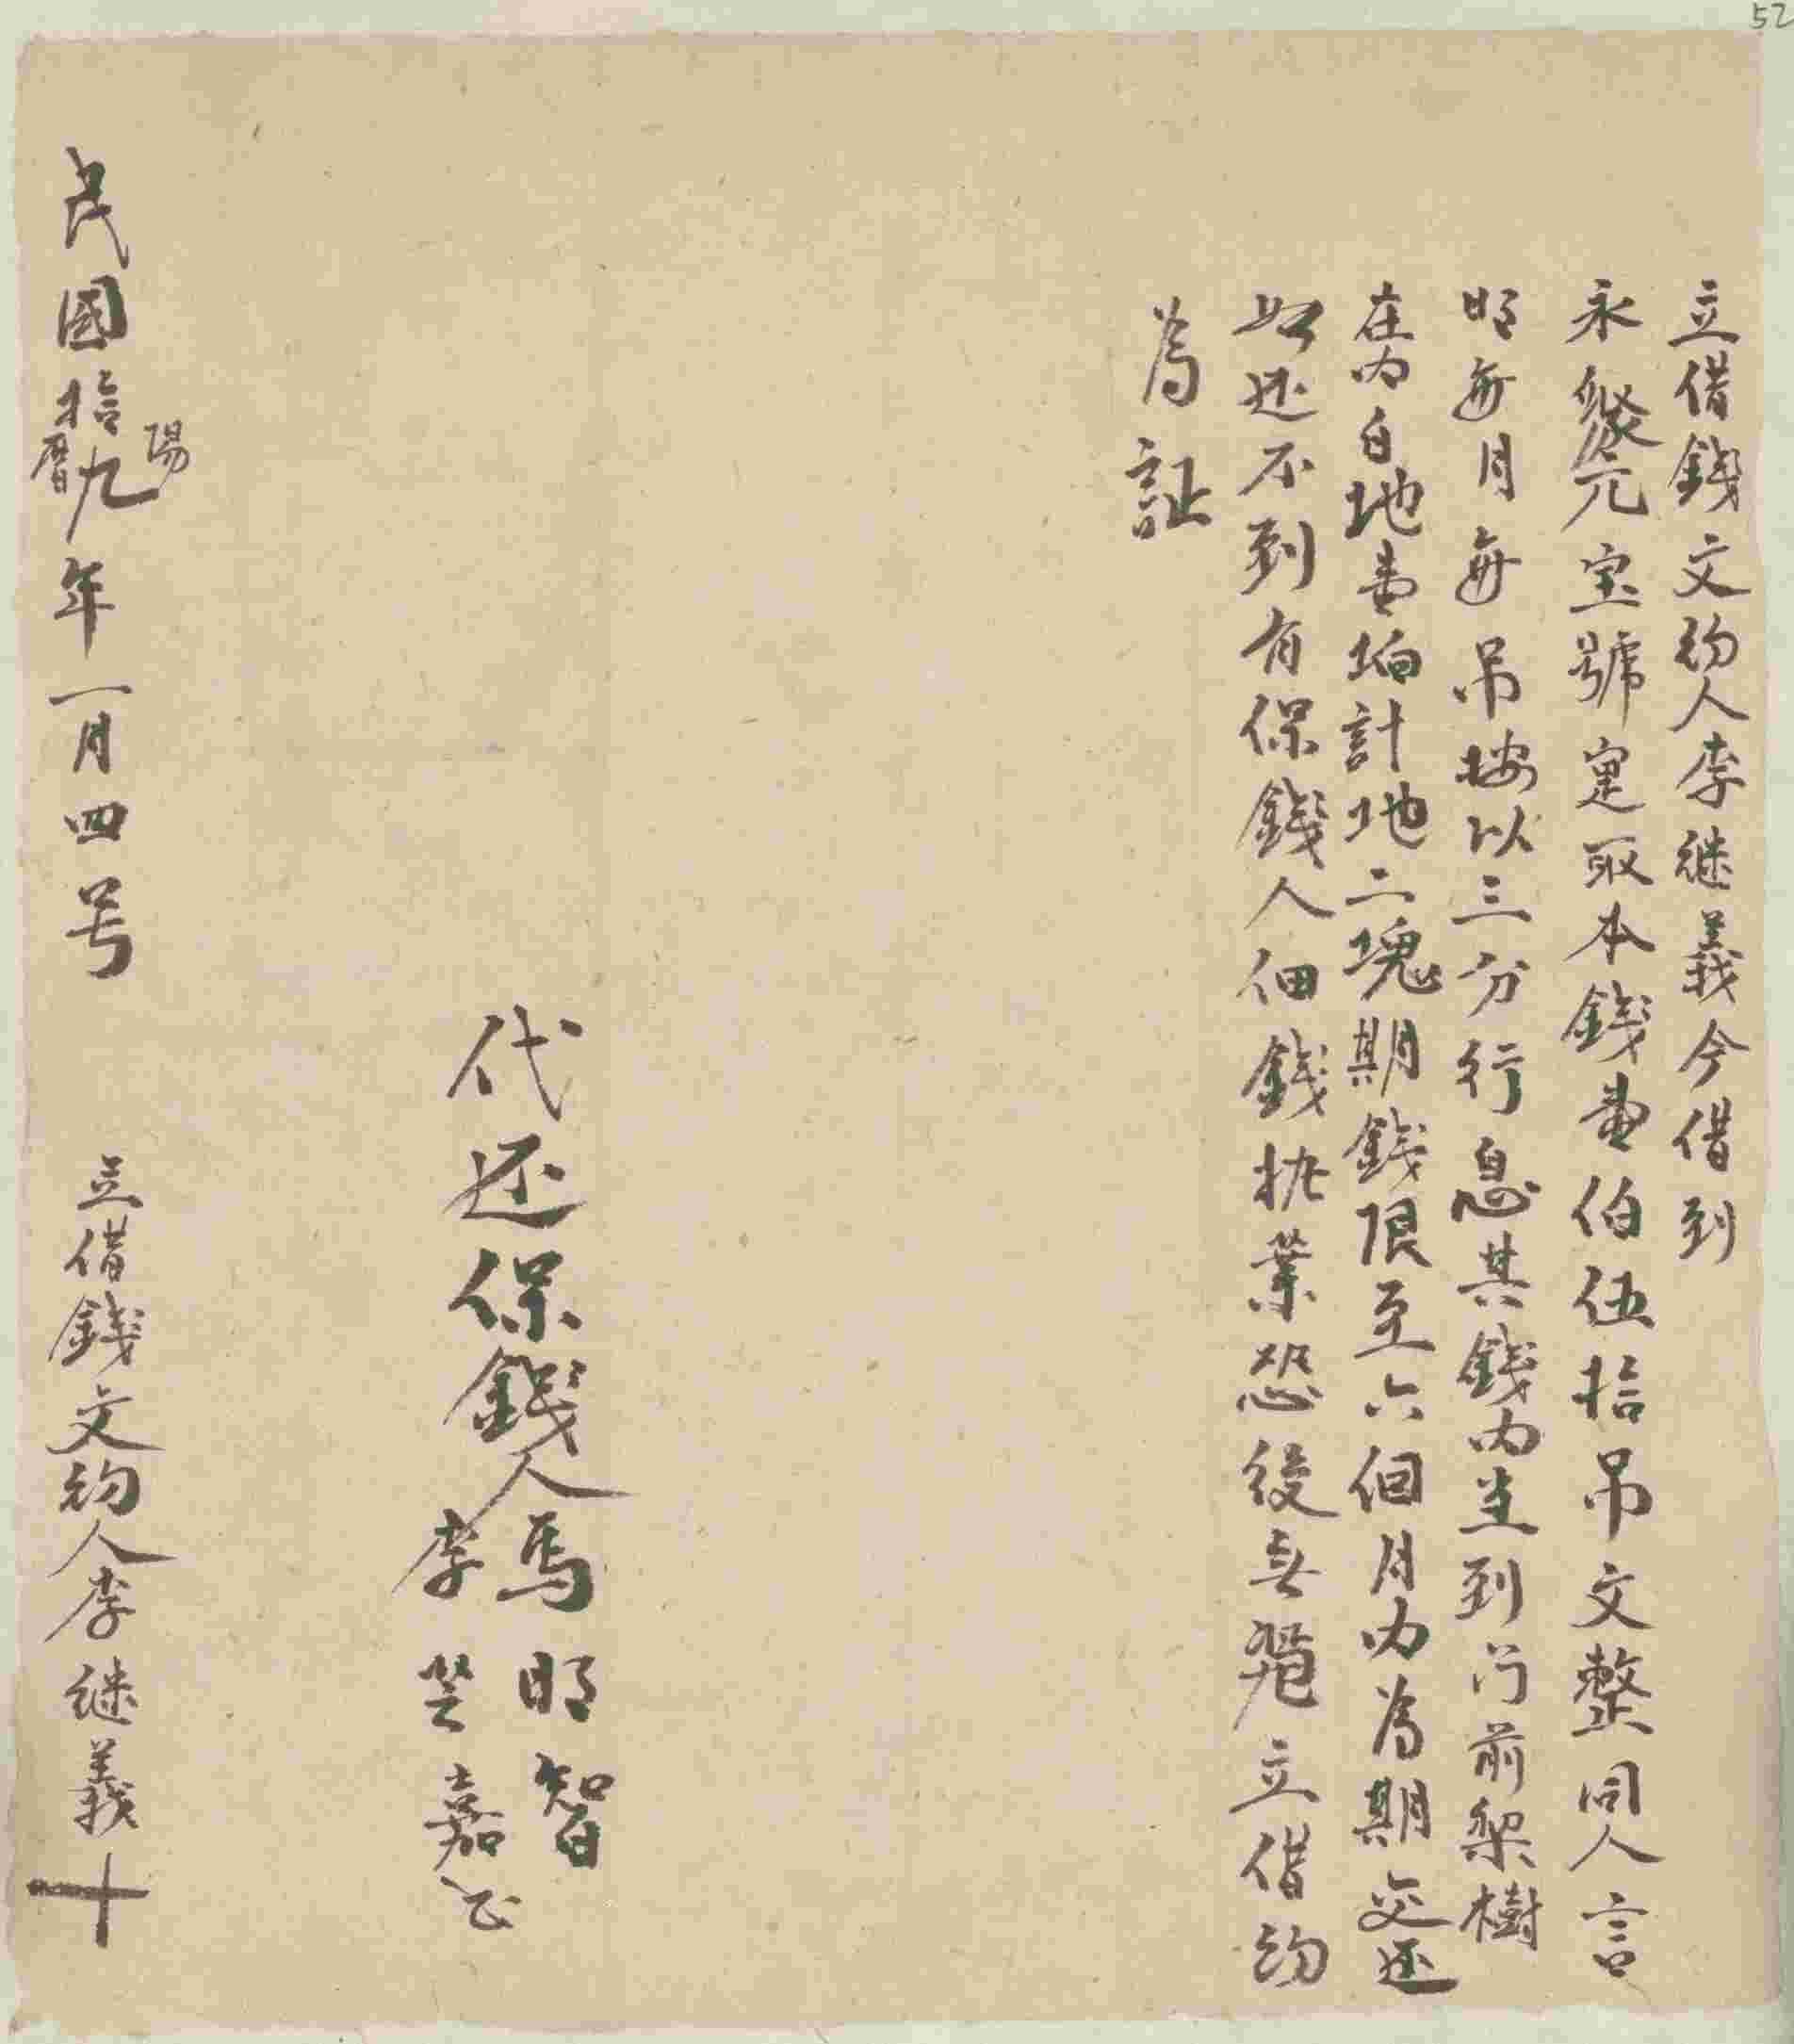 52
立借錢文約人李继義今借到
永聚元宝號寔取本錢壹伯伍拾吊文整同人言
明每月每吊按以三分行息其錢内坐到门前梨樹
在内白地壹垧計地二塊期錢限至六個月内為期交还
如还不到有保錢人佃錢执業恐後無凴立借約
為証
代还保錢人馬明智
李 嘉
民國拾九年一月四号 立借錢文約人李继義十
陽
曆